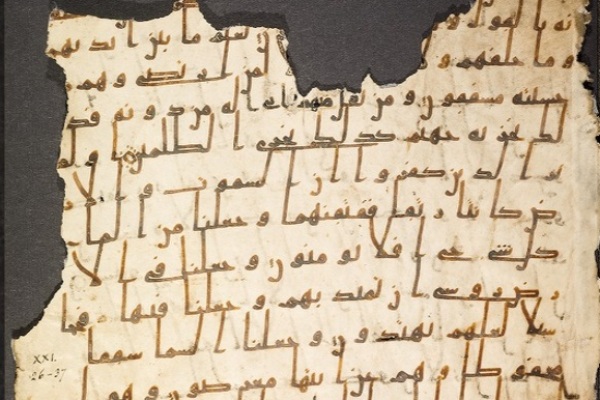 نه بالقول و
يعلم ما بين ايديهم
و ما خلفهم و لمن ارتضى و هم
خشيته مشفقون و من يقل منهم اني اله من دونه فذ
لك نجزيه جهنم كذلك نجزي الظلمين او لم
ير الذين كفروا ان السموت و الا
رض كانتا رتقا ففتقنهما و جعلنا من الما
كل شي حي افلا يومنون و جعلنا في الا
رض روسي ان تميد بهم و جعلنا فيها فجا
سبلا لعلهم يهتدون و جعلنا السما سقفا
محفوظا و هم عن ايتها معرضون و هو
XXI.
26-37